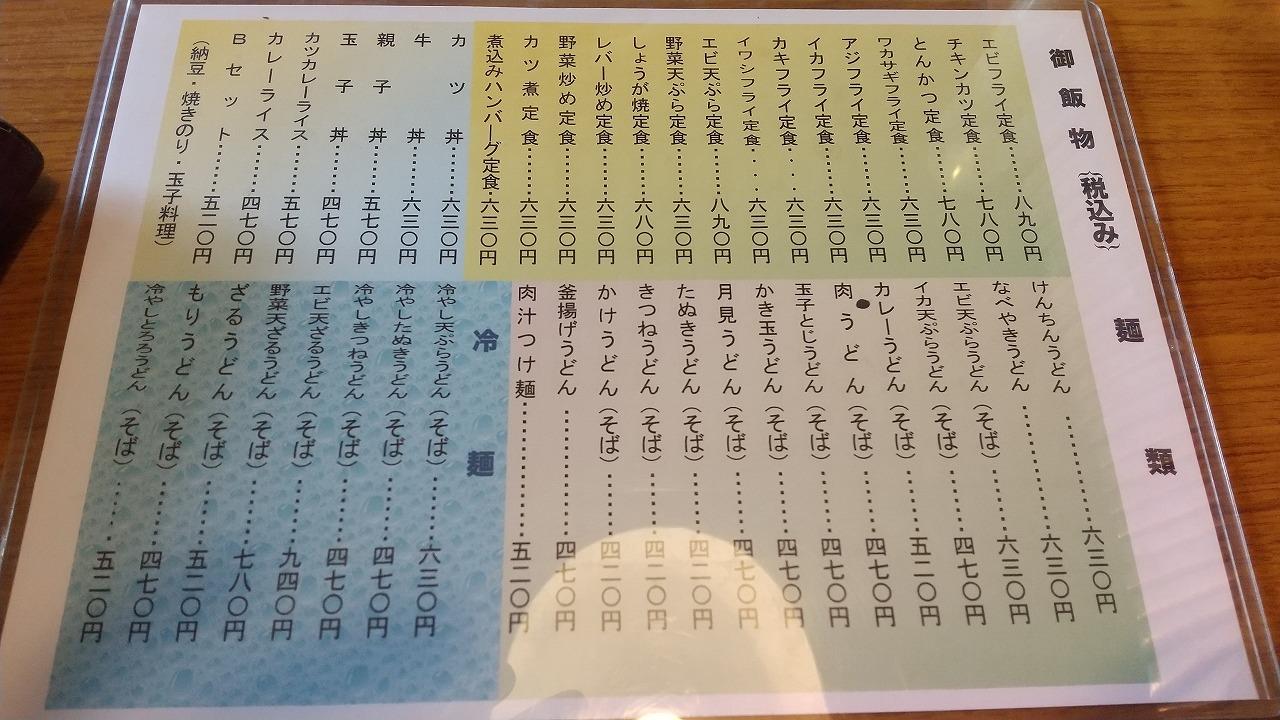 御飯物(税込み)
エビフライ定食‥‥八九〇円
チキンカツ定食‥‥七八〇円
とんかつ定食‥‥七八〇円
ワカサギフライ定食‥‥六三〇円
アジフライ定食‥‥六三〇円
イカフライ定食‥‥六三〇円
カキフライ定食‥‥六三〇円
イワシフライ定食‥‥六三〇円
エビ天ぷら定食‥‥八九〇円
野菜天ぷら定食‥‥六三〇円
しょうが焼定食‥‥六八〇円
レバー炒め定食‥‥六三〇円
野菜炒め定食‥‥六三〇円
カツ煮定食‥‥六三〇円
煮込みハンバーグ定食・六三〇円
カツ丼‥‥六三〇円
牛丼‥‥六三〇円
親子丼‥‥五七〇円
玉子丼‥‥四七〇円
カツカレーライス‥‥五七〇円
カレーライス‥‥四七〇円
Bセット‥‥五二〇円
(納豆・焼きのり・玉子料理)
麺類
けんちんうどん‥‥六三〇円
なべやきうどん‥‥六三〇円
エビ天ぷらうどん(そば)‥‥六三〇円
イカ天ぷらうどん(そば)‥‥四七〇円
カレーうどん(そば)‥‥五二〇円
肉うどん(そば)‥‥四七〇円
玉子とじうどん(そば)‥‥四七〇円
かき玉うどん(そば)‥‥四七〇円
月見うどん(そば)‥‥四七〇円
たぬきうどん(そば)‥‥四二〇円
きつねうどん(そば)‥‥四二〇円
かけうどん(そば)‥‥四二〇円
釜揚げうどん‥‥四七〇円
肉汁つけ麺‥‥五二〇円
冷麺
冷やし天ぷらうどん(そば)‥‥六三〇円
冷やしたぬきうどん(そば)‥‥四七〇円
冷やしきつねうどん(そば)‥‥四七〇円
エビ天ざるうどん(そば)‥‥九四〇円
野菜天ざるうどん(そば)‥‥七八〇円
ざるうどん(そば)‥‥五二〇円
もりうどん(そば)‥‥四七〇円
冷やしとろろうどん(そば)‥‥五二〇円